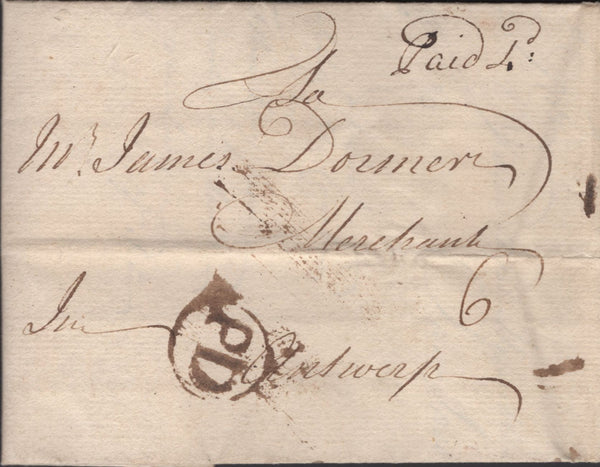 Paid 4d:
To
Mr. James Dormer
Merchant
6
In Antwerp
PD